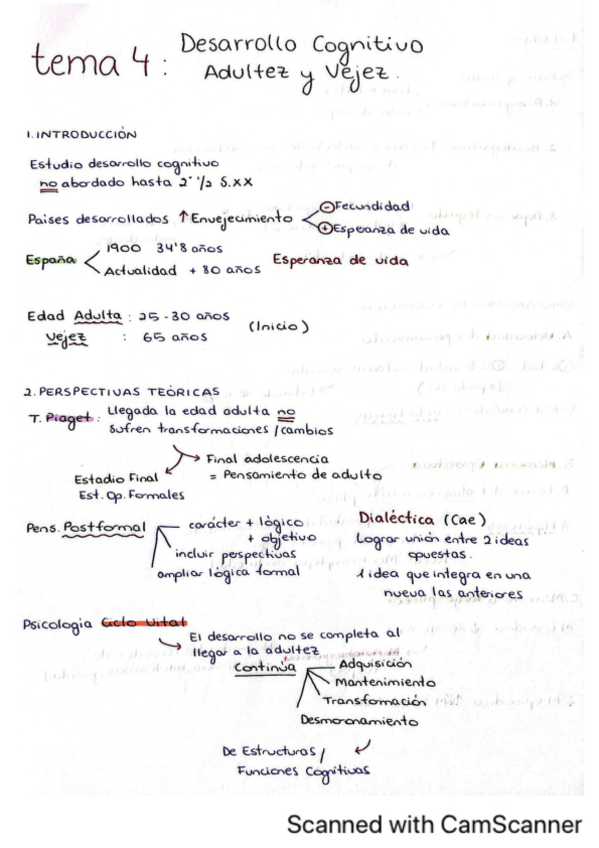 tema 4: Desarrollo Cognitivo
Adultez y Vejez.
1. INTRODUCCIÓN
Estudio desarrollo cognitivo
no abordado hasta 2ª 1/2 S.XX
Paises desarrollados ↑ Envejecimiento
⊖ Fecundidad
⊕ Esperanza de vida
España
1900 34'8 años
Actualidad + 80 años
Esperanza de vida
Edad Adulta : 25-30 años
Vejez : 65 años
(Inicio)
2. PERSPECTIVAS TEÓRICAS
T. Piaget: Llegada la edad adulta no
sufren transformaciones / cambios
Final adolescencia
= Pensamiento de adulto
Estadio Final
Est. Op. Formales
Pens. Postformal
carácter + lógico
+ objetivo
incluir perspectivas
ampliar lógica formal
Dialéctica (Cae)
Lograr unión entre 2 ideas
opuestas.
1 idea que integra en una
nueva las anteriores
Psicologia Ciclo Vital
El desarrollo no se completa al
llegar a la adultez
Continúa
Adquisición
Mantenimiento
Transformación
Desmoronamiento
De Estructuras /
Funciones Cognitivas
Scanned with CamScanner